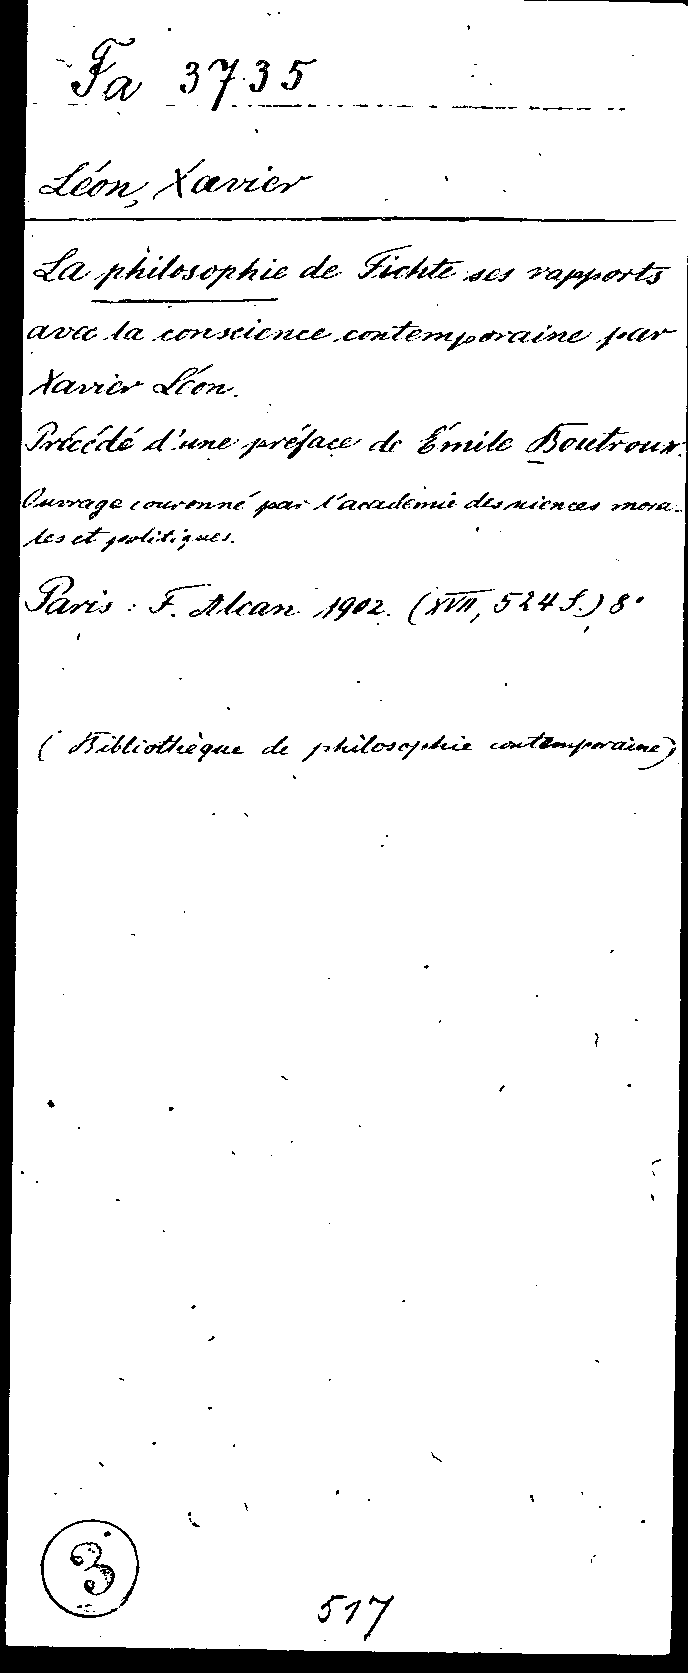 Fa 3735
Léon, Xavier
La philosophie de Fichte ses rapports
avec la conscience contemporaine par
Xavier Léon.
Précédé d'une préface de Émile Boutroux.
Ouvrage couronné par l'académie des sciences mora-
les et politiques.
Paris : F. Alcan 1902. (XVII, 524 S.) 8°
(Bibliothèque de philosophie contemporaine)
3
517